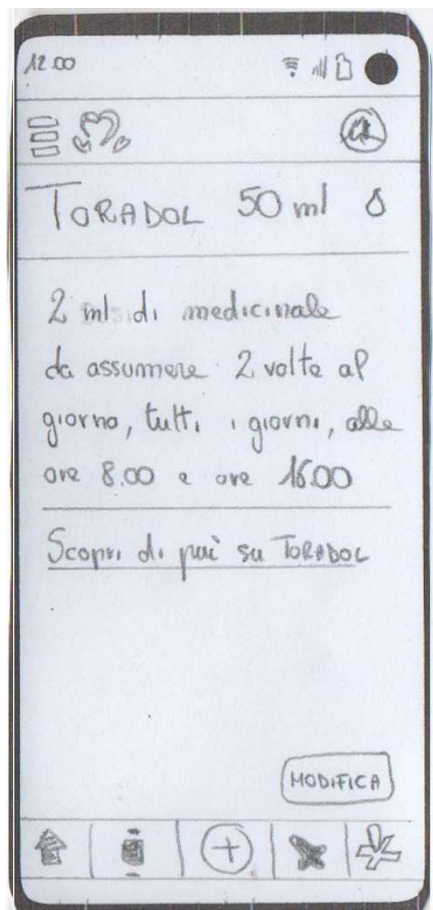 12.00
TORADOL 50 ml
2 ml di medicinale
da assumere 2 volte al
giorno, tutti i giorni, alle
ore 8.00 e ore 16.00
Scopri di più su TORADOL
MODIFICA